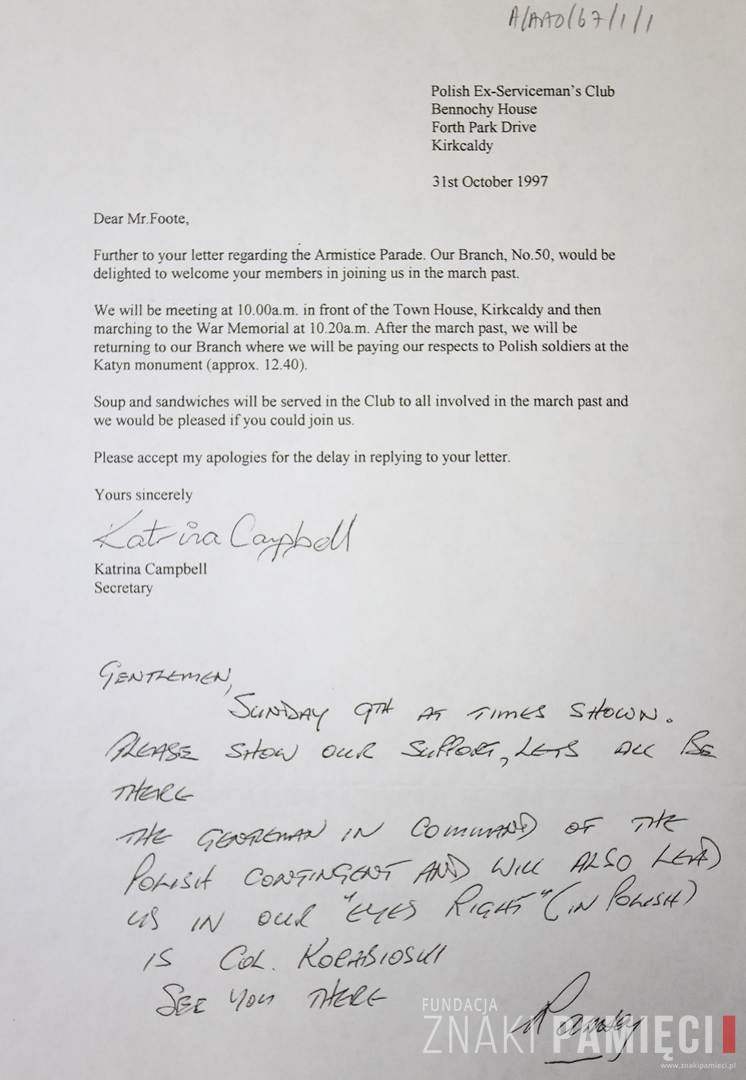 A/AAO/67/1/1
Polish Ex-Serviceman's Club
Bennochy House
Forth Park Drive
Kirkcaldy
31st October 1997
Dear Mr.Foote,
Further to your letter regarding the Armistice Parade. Our Branch, No.50, would be
delighted to welcome your members in joining us in the march past.
We will be meeting at 10.00a.m. in front of the Town House, Kirkcaldy and then
marching to the War Memorial at 10.20a.m. After the march past, we will be
returning to our Branch where we will be paying our respects to Polish soldiers at the
Katyn monument (approx. 12.40).
Soup and sandwiches will be served in the Club to all involved in the march past and
we would be pleased if you could join us.
Please accept my apologies for the delay in replying to your letter.
Yours sincerely
Katrina Campbell
Katrina Campbell
Secretary
GENTLEMEN,
SUNDAY 9TH AT TIMES SHOWN.
PLEASE SHOW OUR SUPPORT, LETS ALL BE
THERE
THE GENTLEMAN IN COMMAND OF THE
POLISH CONTINGENT AND WILL ALSO LEAD
US IN OUR "EYES RIGHT" (IN POLISH)
IS COL. KORABIOSKI
SEE YOU THERE
FUNDACJA
ZNAKI PAMIĘCI
www.znakipamieci.pl